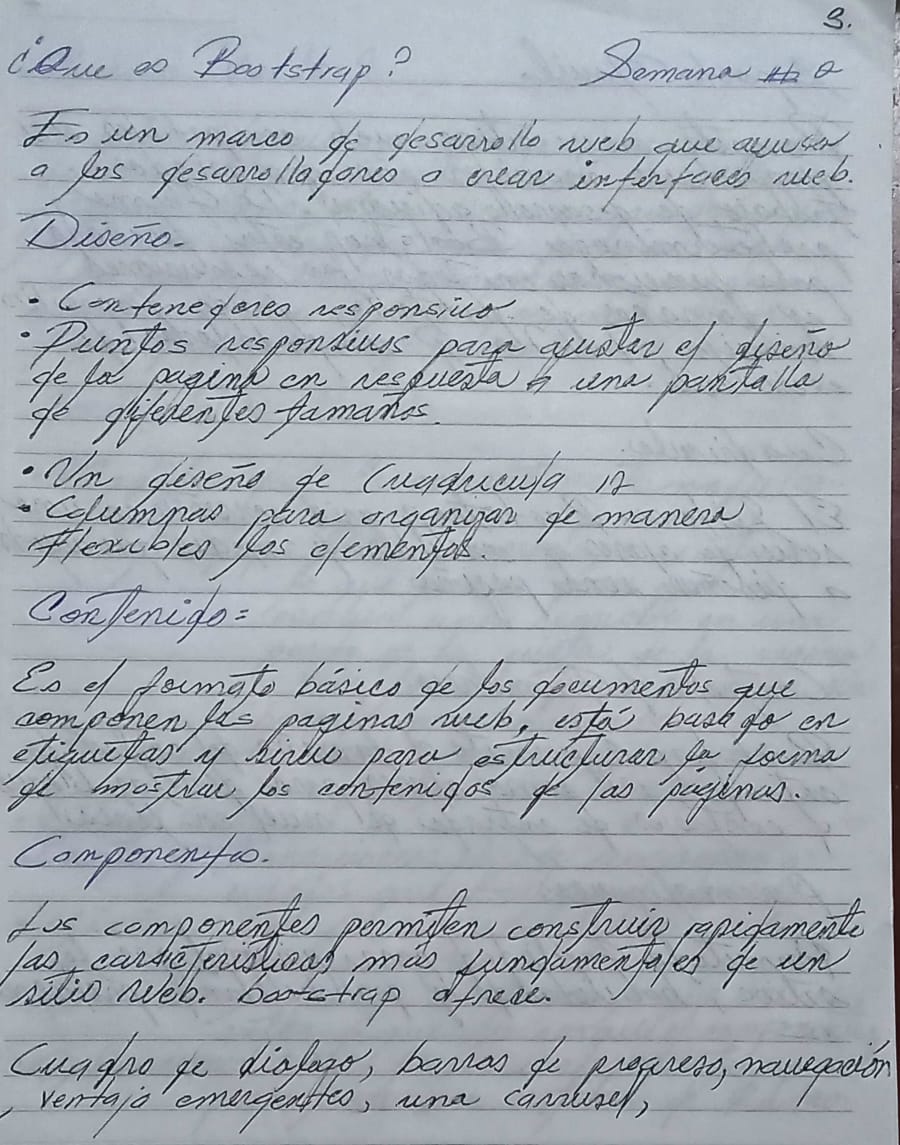 3.
¿Que es Bootstrap? Semana #
Es un marco de desarrollo web que ayuda
a los desarrolladores a crear interfaces web.
Diseño.
• Contenedores responsivo
• Puntos responsivos para ajustar el diseño
de la pagina en respuesta a una pantalla
de diferentes tamaños.
• Un diseño de Cuadricula 12
• Columnas para organizar de manera
flexibles los elementos.
Contenido=
Es el formato básico de los documentos que
componen las paginas web, está basado en
etiquetas y sirve para estructurar la forma
de mostrar los contenidos de las páginas.
Componentes.
Los componentes permiten construir rapidamente
las caracteristicas más fundamentales de un
sitio web. bootstrap ofrece.
Cuadro de dialogo, barras de progreso, navegación
, ventaja emergentes, una carrusel,